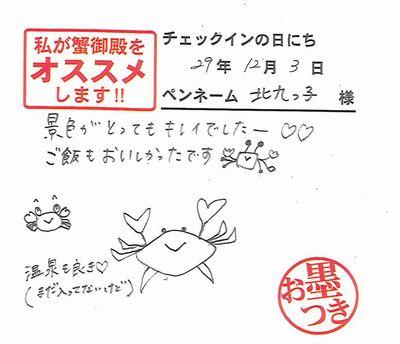 私が蟹御殿を
オススメ
します!!
チェックインの日にち
29年 12月 3日
ペンネーム 北九っ子 様
景色がとってもキレイでしたー♡♡
ご飯もおいしかったです
温泉も良き♡
(まだ入ってないけど)
お墨つき